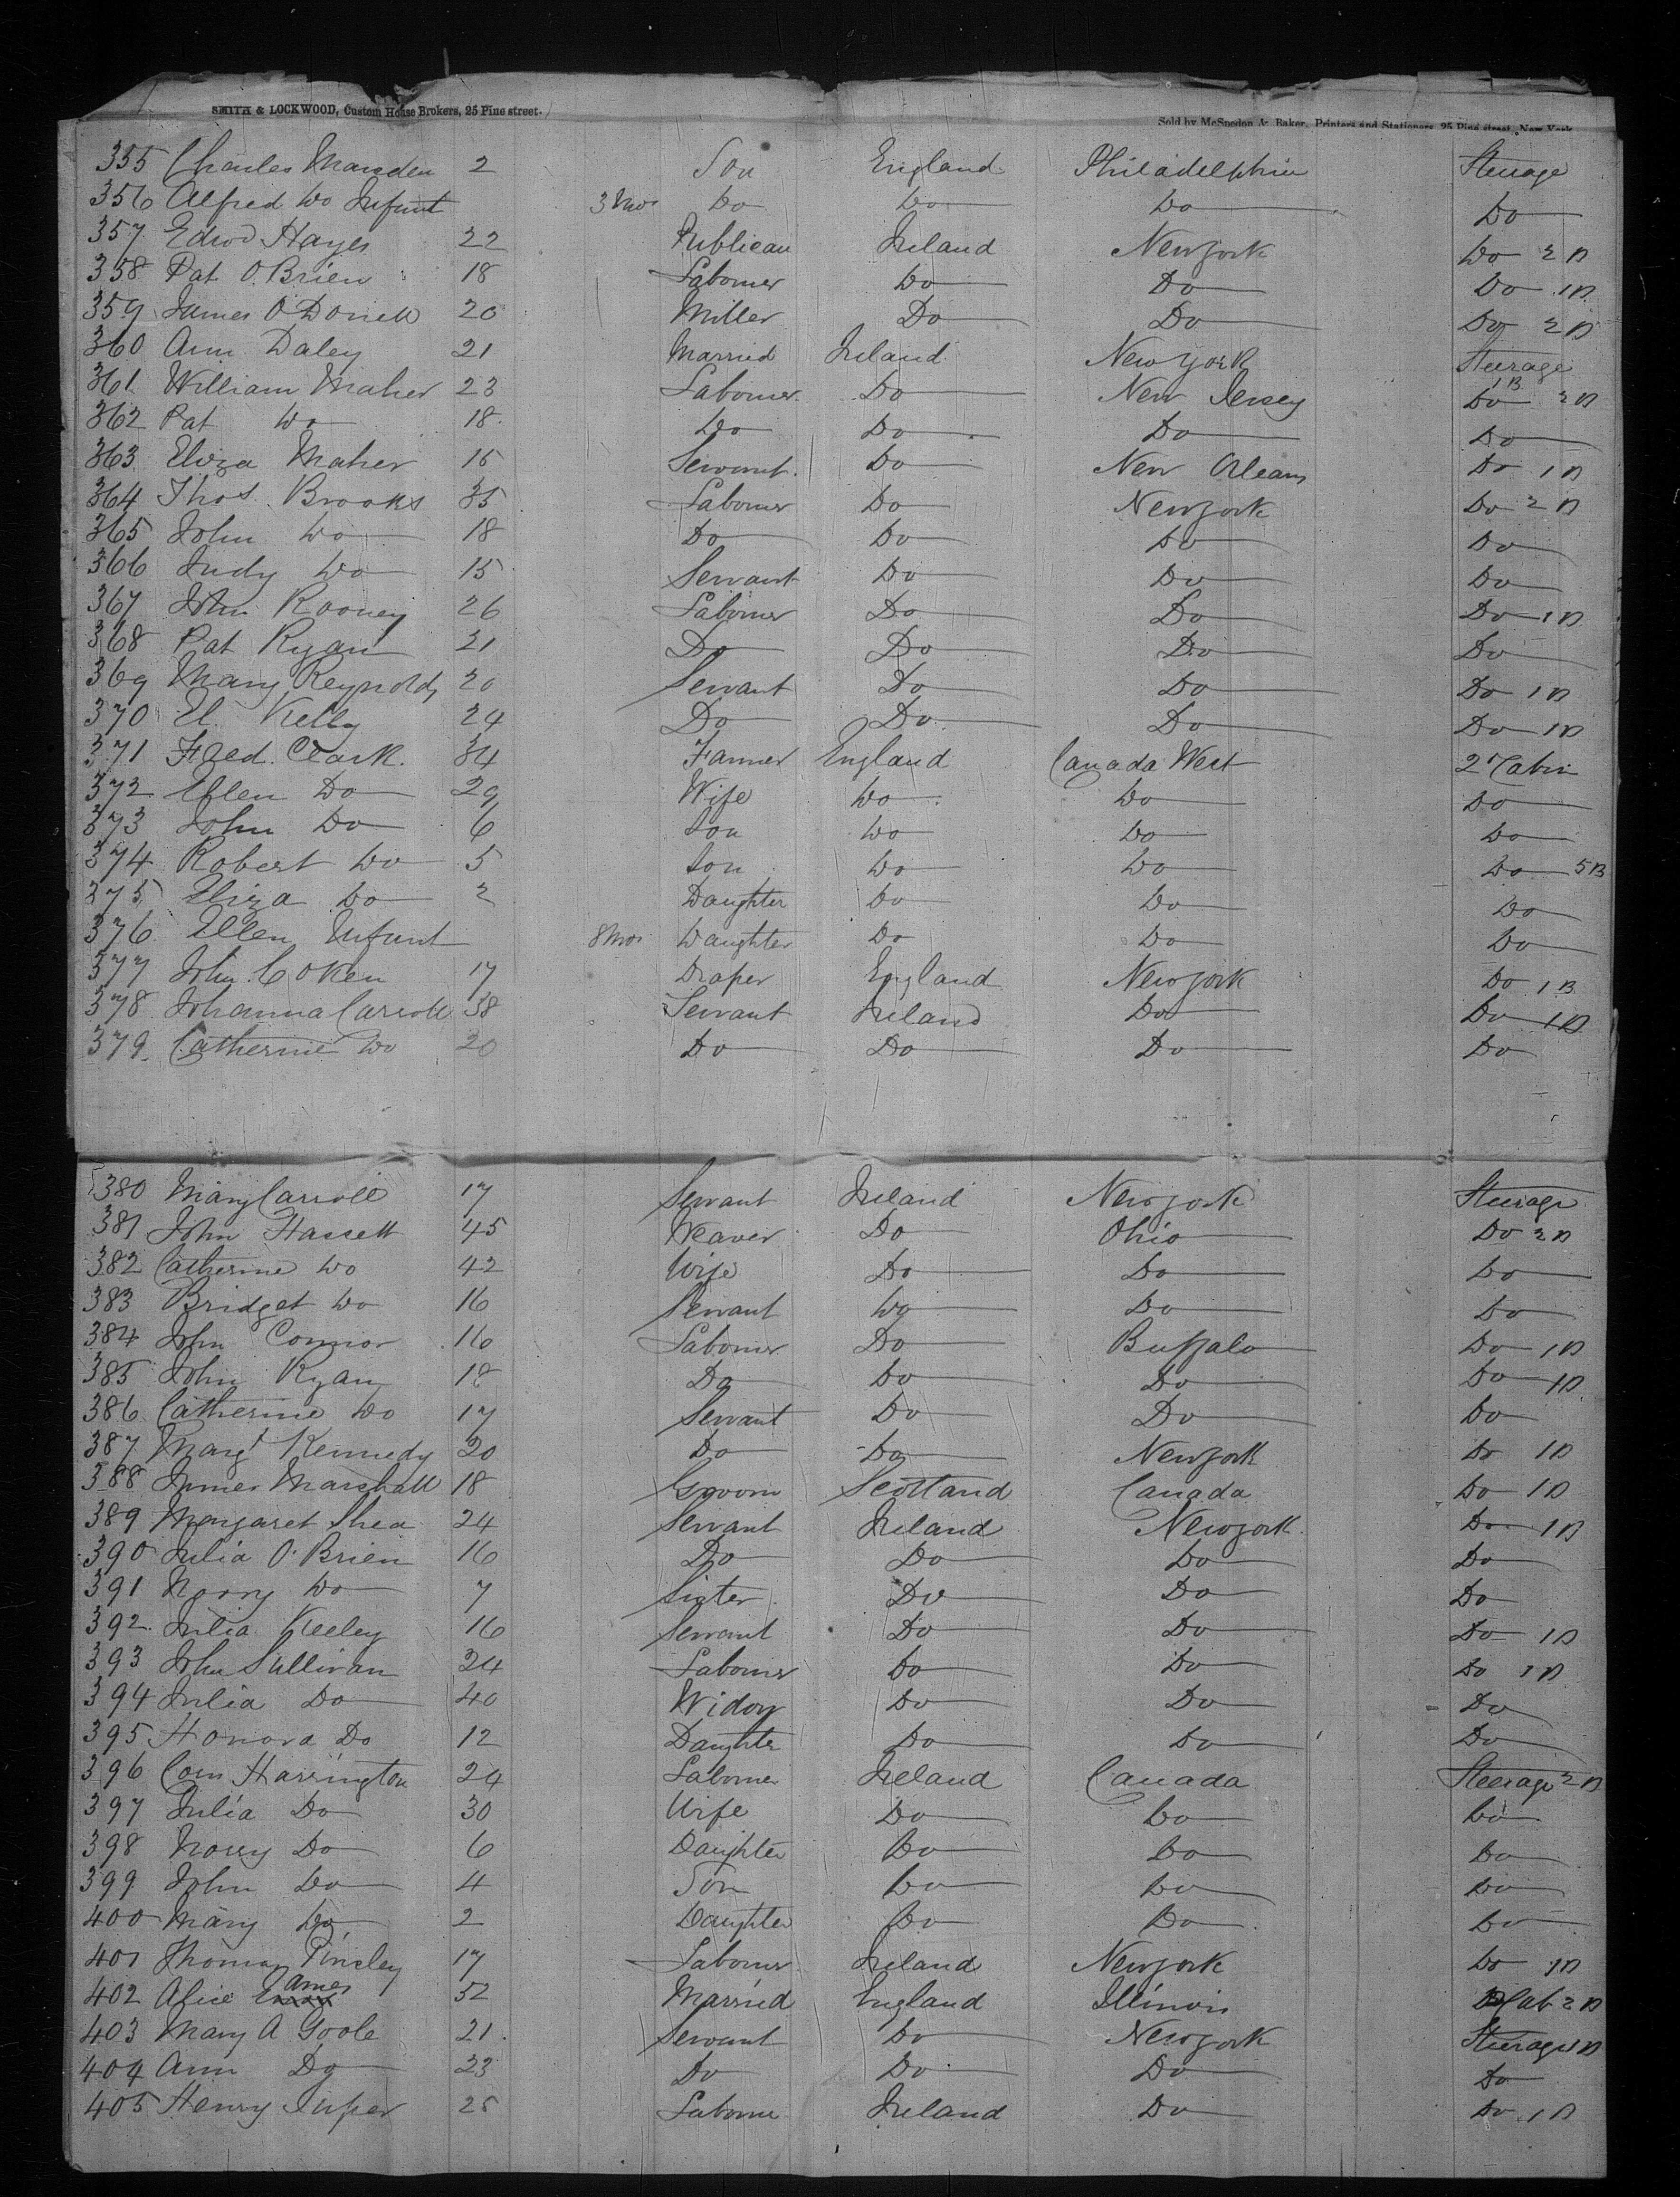 SMITH & LOCKWOOD, Custom House Brokers, 25 Pine street.
Sold by McSpedon & Baker, Printers and Stationers, 25 Pine street, New York
355 Charles Marsden 2 Son England Philadelphia Steerage
356 Alfred Do Infant 3 Mos Do Do Do Do
357 Edwd Hayes 22 Publican Ireland New York Do 2 B
358 Pat O.Brien 18 Laborer Do Do Do 1B
359 James O'Donell 20 Miller Do Do Do 2 B
360 Ann Daley 21 Married Ireland New York Steerage 1B
361 William Maher 23 Laborer Do New Jersey Do 2 B
362 Pat Do 18 Do Do Do Do
363 Eliza Maher 15 Servant Do New Orleans Do 1 B
364 Thos. Brooks 35 Laborer Do New York Do 2 B
365 John Do 18 Do Do Do Do
366 Judy Do 15 Servant Do Do Do
367 John Rooney 26 Laborer Do Do Do 1 B
368 Pat Ryan 21 Do Do Do Do
369 Mary Reynolds 20 Servant Do Do Do 1 B
370 El. Kelly 24 Do Do Do Do 1B
371 Fred. Clark. 34 Farmer England Canada West 2d Cabin
372 Ellen Do 29 Wife Do Do Do
373 John Do 6 Son Do Do Do
374 Robert Do 5 Son Do Do Do 5 B
375 Eliza Do 2 Daughter Do Do Do
376 Ellen Infant 8 Mos Daughter Do Do Do
377 John Coken 17 Draper England New York Do 1 B
378 Johanna Carroll 38 Servant Ireland Do Do 1B
379 Catherine Do 20 Do Do Do Do
380 Mary Carroll 17 Servant Ireland New York Steerage
381 John Hassett 45 Weaver Do Ohio Do 2 B
382 Catherine Do 42 Wife Do Do Do
383 Bridget Do 16 Servant Do Do Do
384 John Connor 16 Laborer Do Buffalo Do 1 B
385 John Ryan 18 Do Do Do Do 1B
386 Catherine Do 17 Servant Do Do Do
387 Margt Kennedy 20 Do Do New York Do 1B
388 James Marshall 18 Groom Scotland Canada Do 1B
389 Margaret Shea 24 Servant Ireland New York Do 1B
390 Julia O'Brien 16 Do Do Do Do
391 Norry Do 7 Sister Do Do Do
392 Julia Keeley 16 Servant Do Do Do 1B
393 John Sullivan 24 Laborer Do Do Do 1B
394 Julia Do 40 Widow Do Do Do
395 Honora Do 12 Daughter Do Do Do
396 Corn Harrington 24 Laborer Ireland Canada Steerage 2 B
397 Julia Do 30 Wife Do Do Do
398 Norry Do 6 Daughter Do Do Do
399 John Do 4 Son Do Do Do
400 Mary Do 2 Daughter Do Do Do
401 Thomas Tinsley 17 Laborer Ireland New York Do 1B
402 Alice Ames 32 Married England Illinois Cab 2 B
403 Mary A Goole 21 Servant Do New York Steerage 1B
404 Ann Do 23 Do Do Do Do
405 Henry 25 Laborer Ireland Do Do 1B